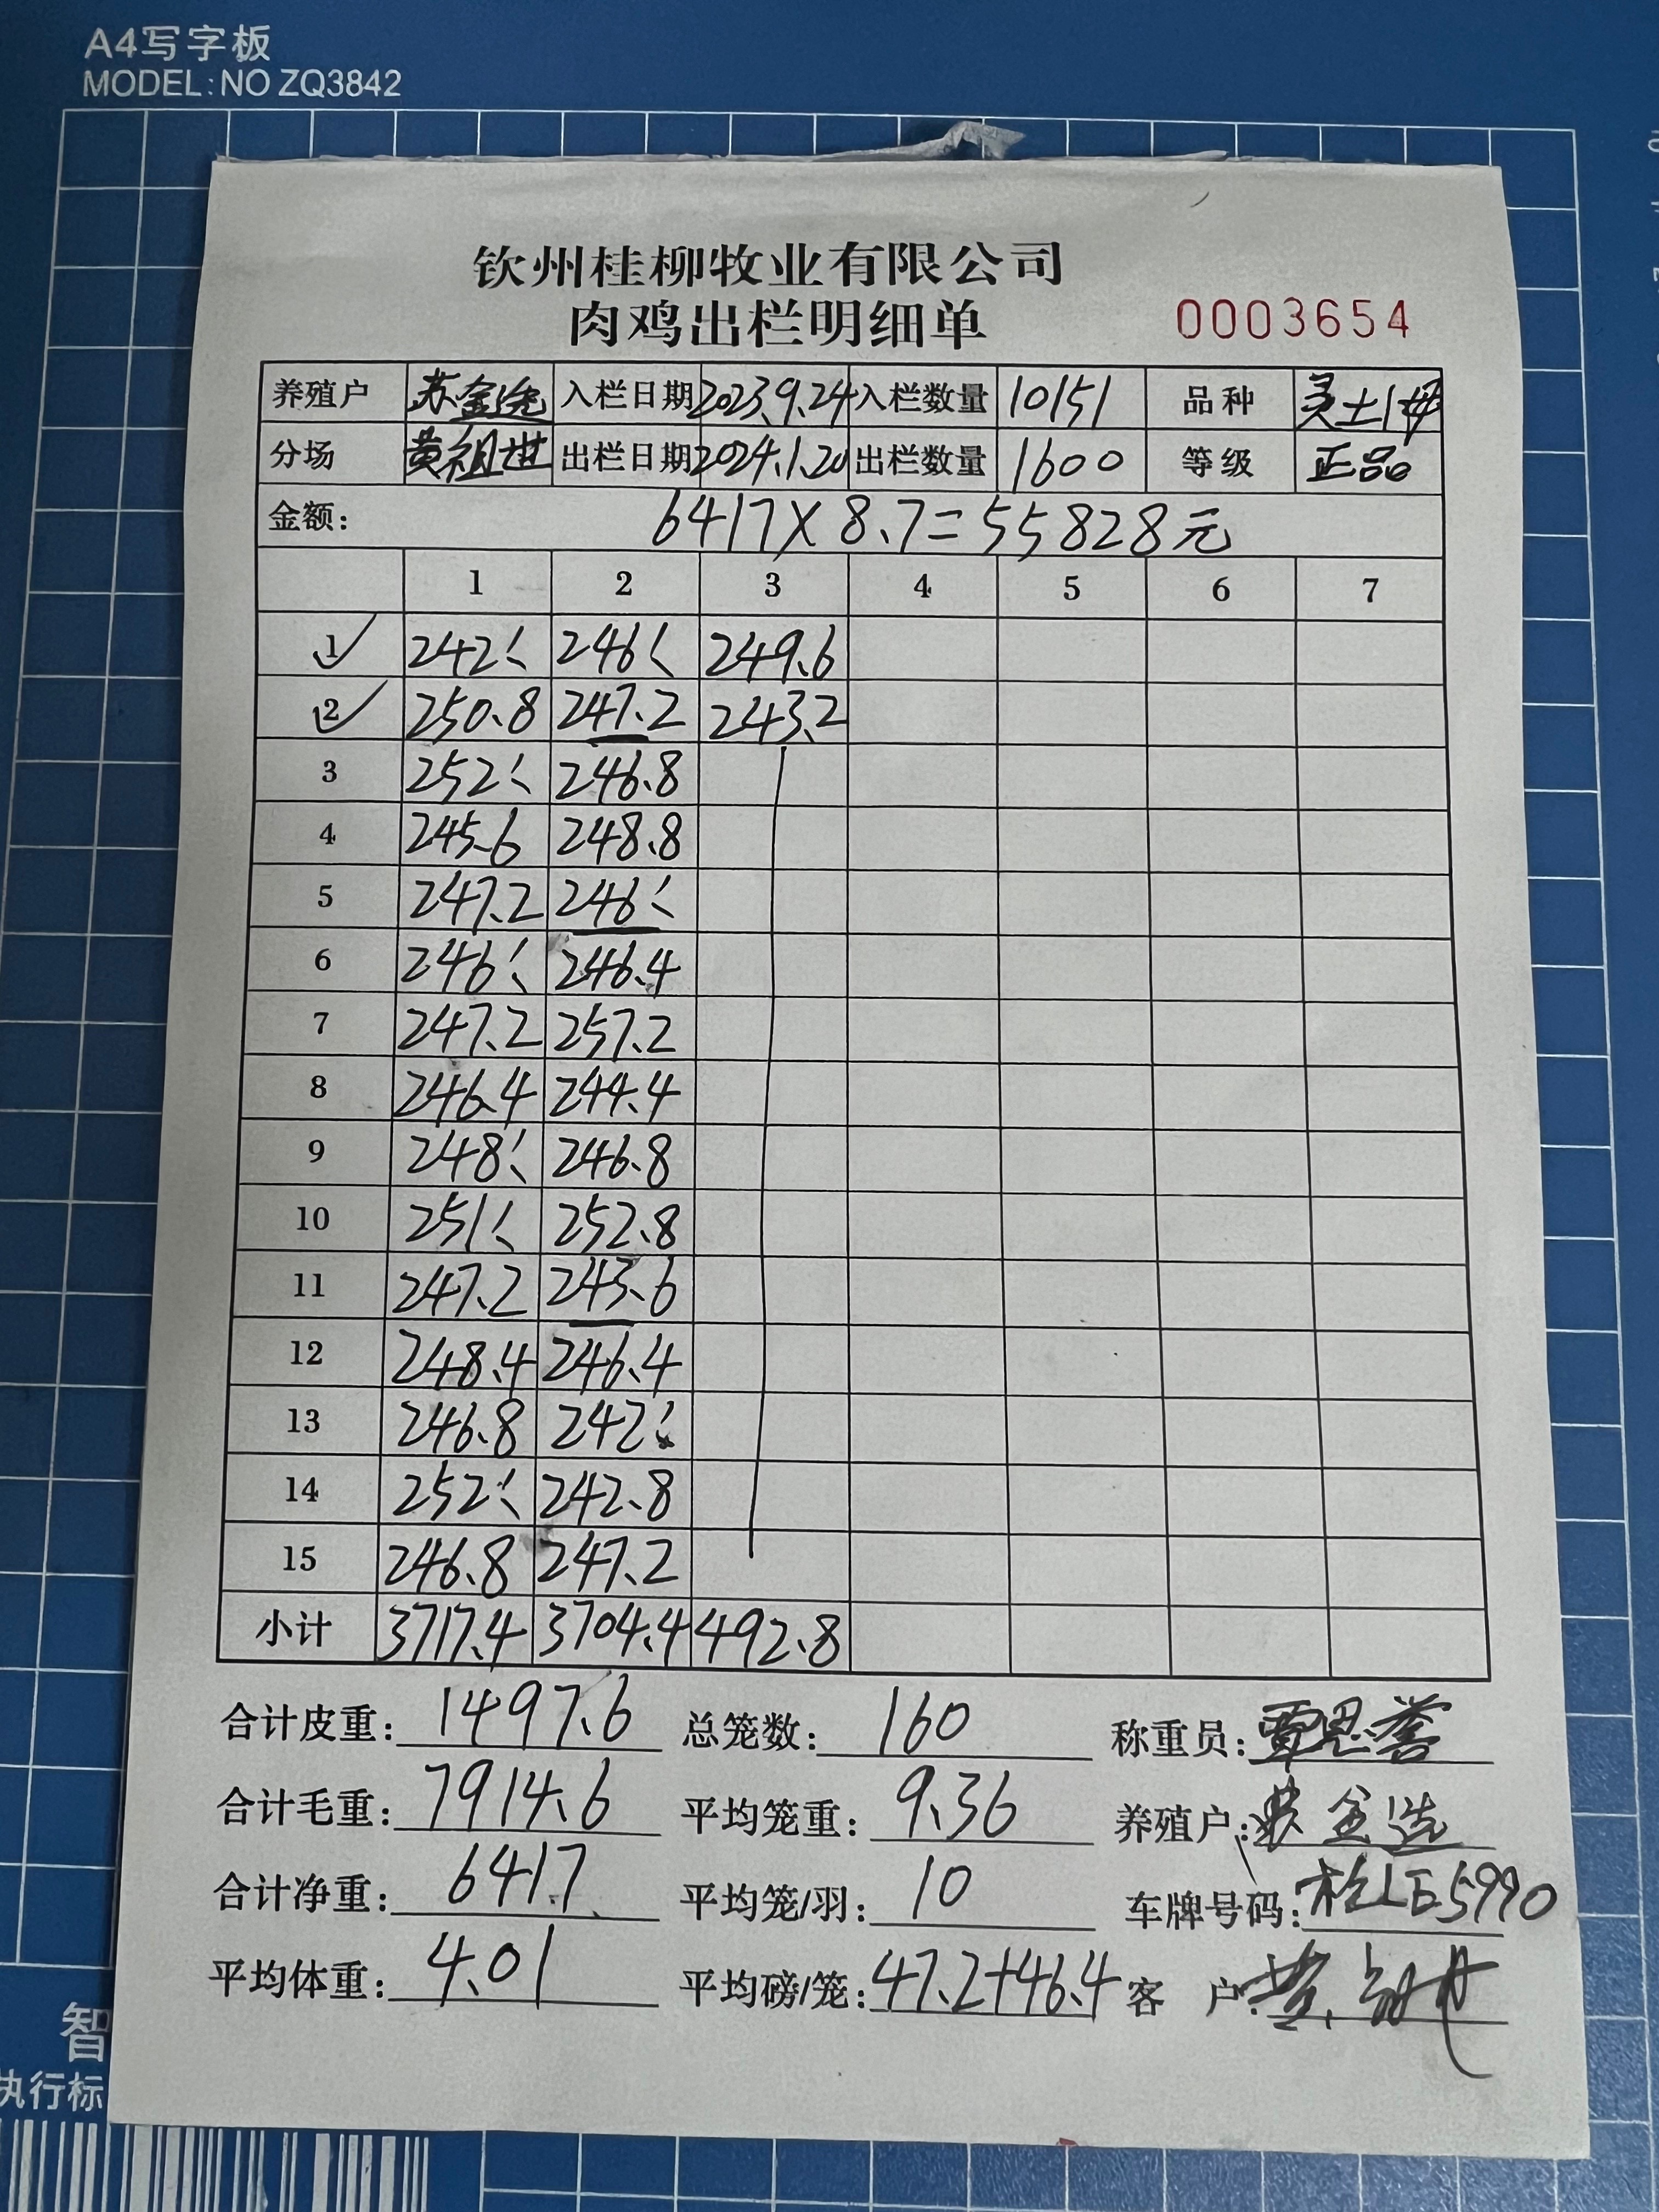 A4写字板
MODEL: NO ZQ3842
钦州桂柳牧业有限公司
肉鸡出栏明细单 0003654
养殖户 苏金选 入栏日期 2023.9.24 入栏数量 10151 品种 灵土1母
分场 黄祖世 出栏日期 2024.1.20 出栏数量 1600 等级 正品
金额: 6417×8.7=55828元
1 2 3 4 5 6 7
1 242 246 249.6
2 250.8 247.2 243.2
3 252 246.8
4 245.6 248.8
5 247.2 246
6 246 246.4
7 247.2 257.2
8 246.4 244.4
9 248 246.8
10 251 252.8
11 247.2 243.6
12 248.4 246.4
13 246.8 242
14 252 242.8
15 246.8 247.2
小计 3717.4 3704.4 492.8
合计皮重: 1497.6 总笼数: 160 称重员: 覃恩誉
合计毛重: 7914.6 平均笼重: 9.36 养殖户: 苏金选
合计净重: 6417 平均笼/羽: 10 车牌号码: 桂LE5990
平均体重: 4.01 平均磅/笼: 47.2+46.4 客 户:
智
执行标